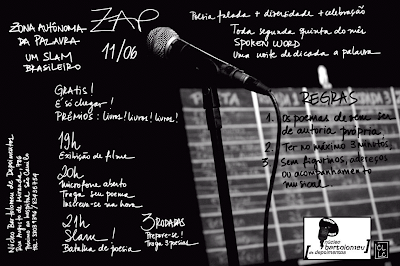 ZONA AUTÔNOMA
DA PALAVRA
UM SLAM
BRASILEIRO
ZAP
11/06
Poesia falada + diversidade + celebração
Toda segunda quinta do mês
SPOKEN WORD
Uma noite dedicada a palavra
GRATIS!
E só chegar!
PRÊMIOS: livros! livros! livros!
19h
Exibição de filme
20h
microfone aberto
Traga seu poema
Inscreve-se na hora
21h
Slam!
Batalha de poesia
3 RODADAS
Prepare-se!
Traga 3 poesias
REGRAS
1. Os poemas devem ser
de autoria própria,
2. Ter no máximo 3 minutos,
3. Sem figurinos, adereços
ou acompanhamento
musical
Núcleo Bartolomeu de Depoimentos
Rua Augusto de Miranda, 786
núcleo
bartolomeu
de depoimentos